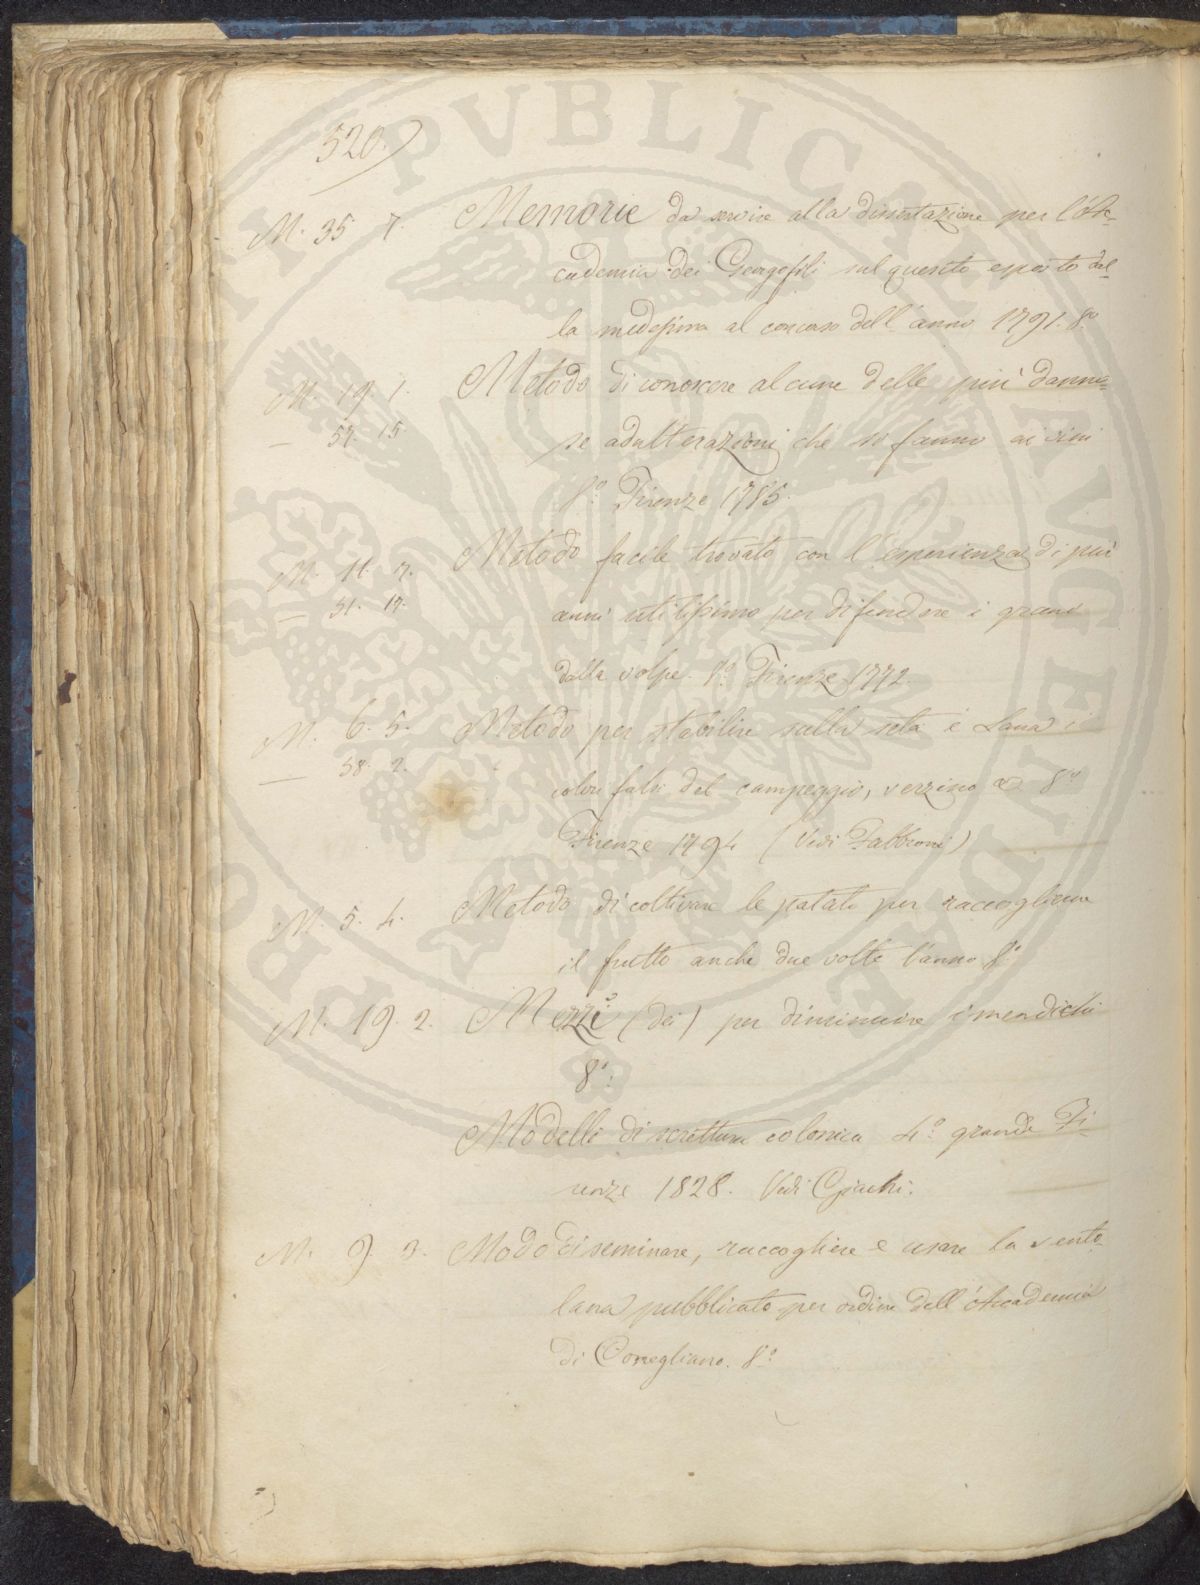 520.
M. 35. 7. Memorie da servire alla dissertazione per l'Ac-
cademia dei Georgofili sul quesito esposto dal-
la medesima al concorso dell'anno 1791. 8.vo
M. 19. 1. Metodo di conoscere alcune delle più danno-
— 57. 15. se adulterazioni che si fanno ai vini
8.o Firenze 1785.
M. 11. 7. Metodo facile trovato con l'esperienza di più
— 51. 17. anni utilissimo per difendere i grani
dalla volpe. 8.o Firenze 1772.
M. 6. 5. Metodo per stabilire sulla seta e Lana i
— 58. 2. colori falsi del campeggio, verzino 8.vo
Firenze 1794 (Vedi Fabbroni)
M. 5. 4. Metodo di coltivare le patate per raccoglierne
il frutto anche due volte l'anno 8.o
M. 19. 2. Mezzi (dei) per diminuire i mendichi
8.o
Modelli di scrittura colonica 4.o grande Fi-
renze 1828. Vedi Giachi.
M. 9. 3. Modo di seminare, raccogliere e usare la vento-
lana pubblicato per ordine dell'Accademia
di Conegliano. 8.o
PUBLICAE AUGENDAE PROSPERITATI